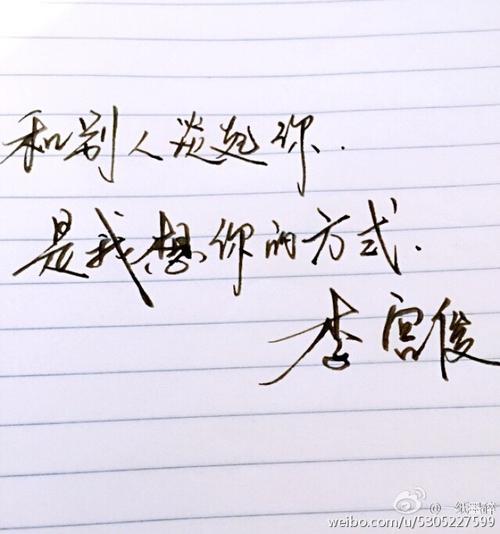 和别人谈起你.
是我想你的方式.
李宫俊
@一纸墨碎
weibo.com/u/5305227599